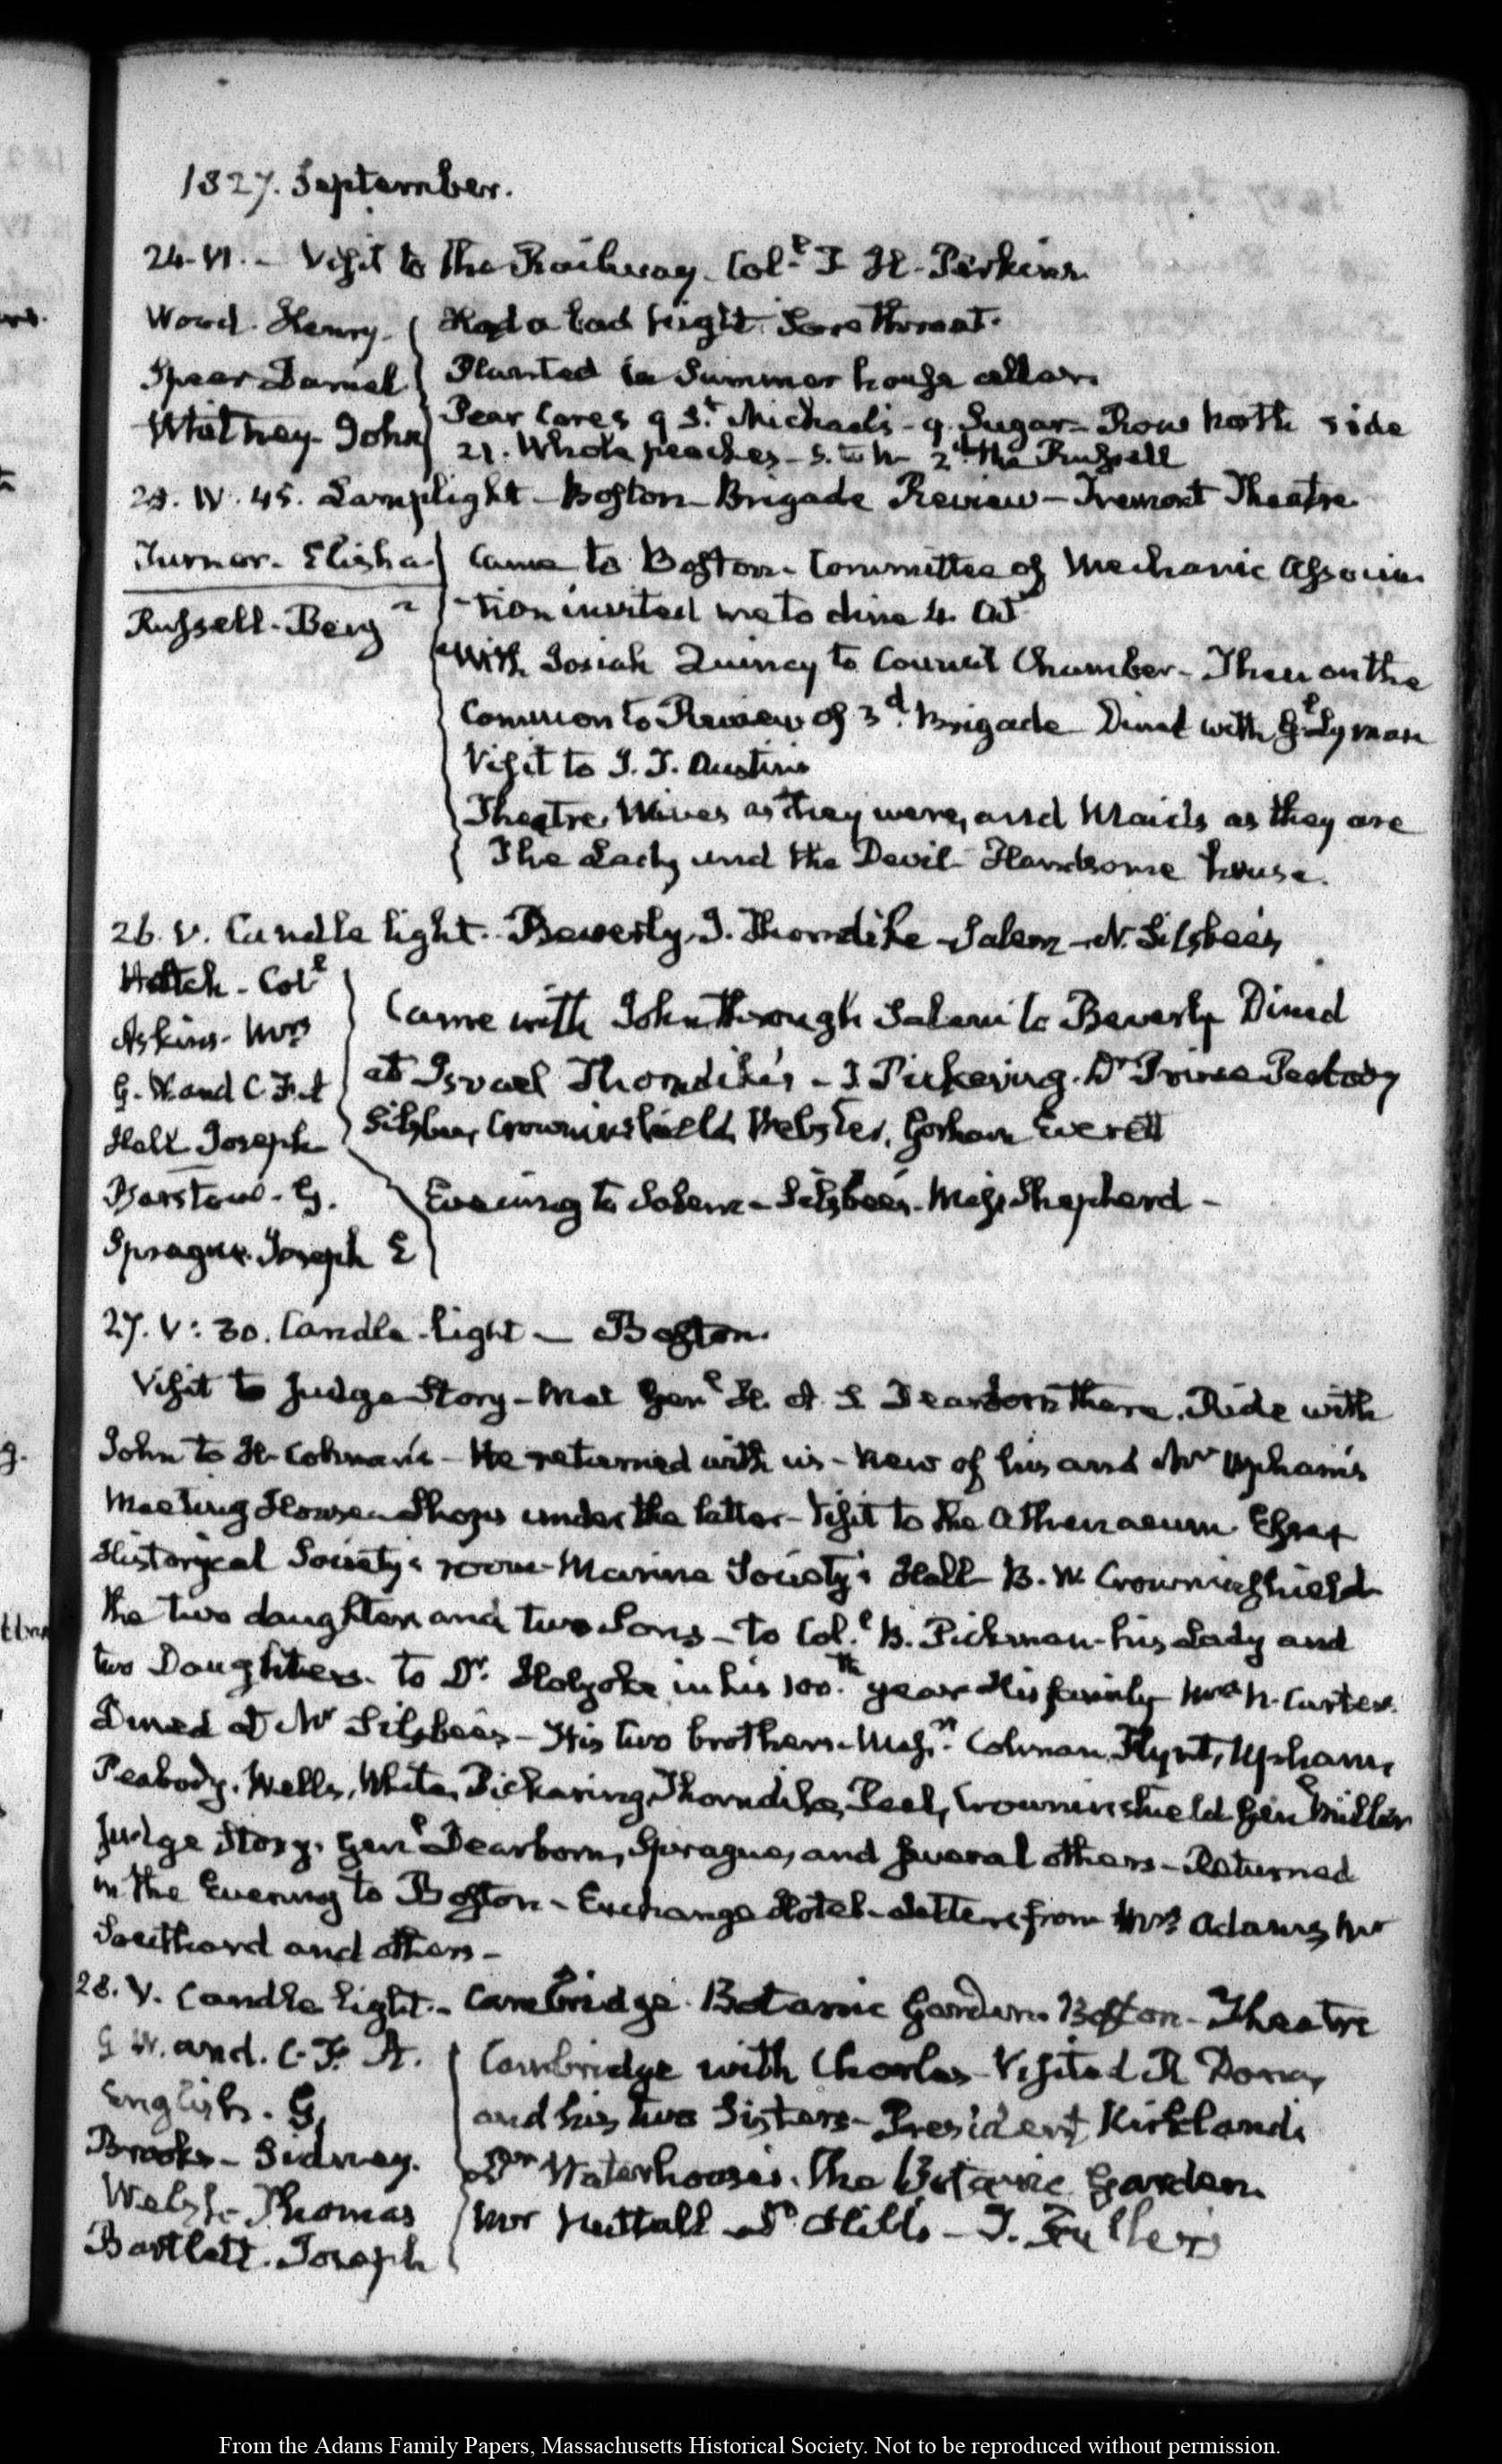 1827. September.
24. VI. - Visit to the Railway. Col.l T H. Perkins.
Wood. Henry. Had a bad night. Sore throat.
Spear Daniel Planted in Summer house cellar.
Whitney. John Pear Cores 9 St. Michael's - 9. Sugar - Row North side
21. Whole peaches - S. to N 2d. the Russell
25. IV. 45. Lamplight - Boston - Brigade Review - Tremont Theatre
Turner. Elisha. Came to Boston. Committee of Mechanic Associa
Russell. Benjn -tion invited me to dine 4. Oct
With Josiah Quincy to Council Chamber - Then on the
Common to Review of 3d. Brigade Dined with Gl. Lyman
Visit to J. T. Austin's
Theatre. Wives as they were, and Maids as they are
The Lady and the Devil Handsome house.
26. V. Candle light. Beverly. I. Thorndike - Salem - N. Silsbee's
Hatch - Coll
Askins - Mrs Came with John through Salem to Beverly Dined
G. W. and C. F. A at Israel Thorndike's - T Pickering. Dr Prince Peabody
Hall Joseph Silsbee, Crowninshield, Webster, Gorham Everett
Barstow. G. Evening to Salem - Silsbee's. Miss Shepherd -
Sprague. Joseph E
27. V: 30. Candle-light - Boston.
Visit to Judge Story - Met Genl H. A. S Dearborn there. Ride with
John to H. Colman's - He returned with us - View of his and Mr Upham's
Meeting Houses Shops under the latter - Visit to the Athenaeum Essex
Historical Society's room - Marine Society's Hall - B. W. Crowninshield
the two daughters and two Sons - To Col.l B. Pickman - his Lady and
two Daughters. To Dr. Holyoke in his 100.th year His family Mrs N. Carter.
Dined at Mr Silsbee's - His two brothers. Messrs. Colman, Flynt, Upham,
Peabody. Wells, White, Pickering, Thorndike, Peel, Crowninshield Genl Miller
Judge Story. Genl Dearborn, Sprague, and several others - Returned
in the Evening to Boston - Exchange Hotel - Letters from Mrs Adams, Mr
Southard and others -
28. V. Candle light. - Cambridge. Botanic Garden. Boston - Theatre
G W. and. C. F. A. Cambridge with Charles - Visited R Dana,
English. G. and his two Sisters - President Kirkland's
Brooks - Sidney. Dr Waterhouse's. The Botanic Garden.
Welsh - Thomas Mr Nuttall Dr. Hill's - T. Fuller's
Bartlett. Joseph
From the Adams Family Papers, Massachusetts Historical Society. Not to be reproduced without permission.